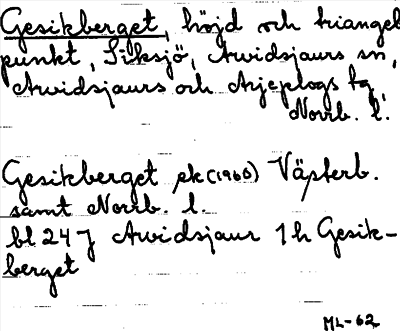 Gesikberget, höjd och triangel
punkt, Siksjö, Arvidsjaurs sn,
Arvidsjaurs och Arjeplogs tg,
Norrb. l.
Gesikberget ek (1960) Västerb.
samt Norrb. l.
bl 24 J Arvidsjaur 1h Gesik-
berget
ML-62